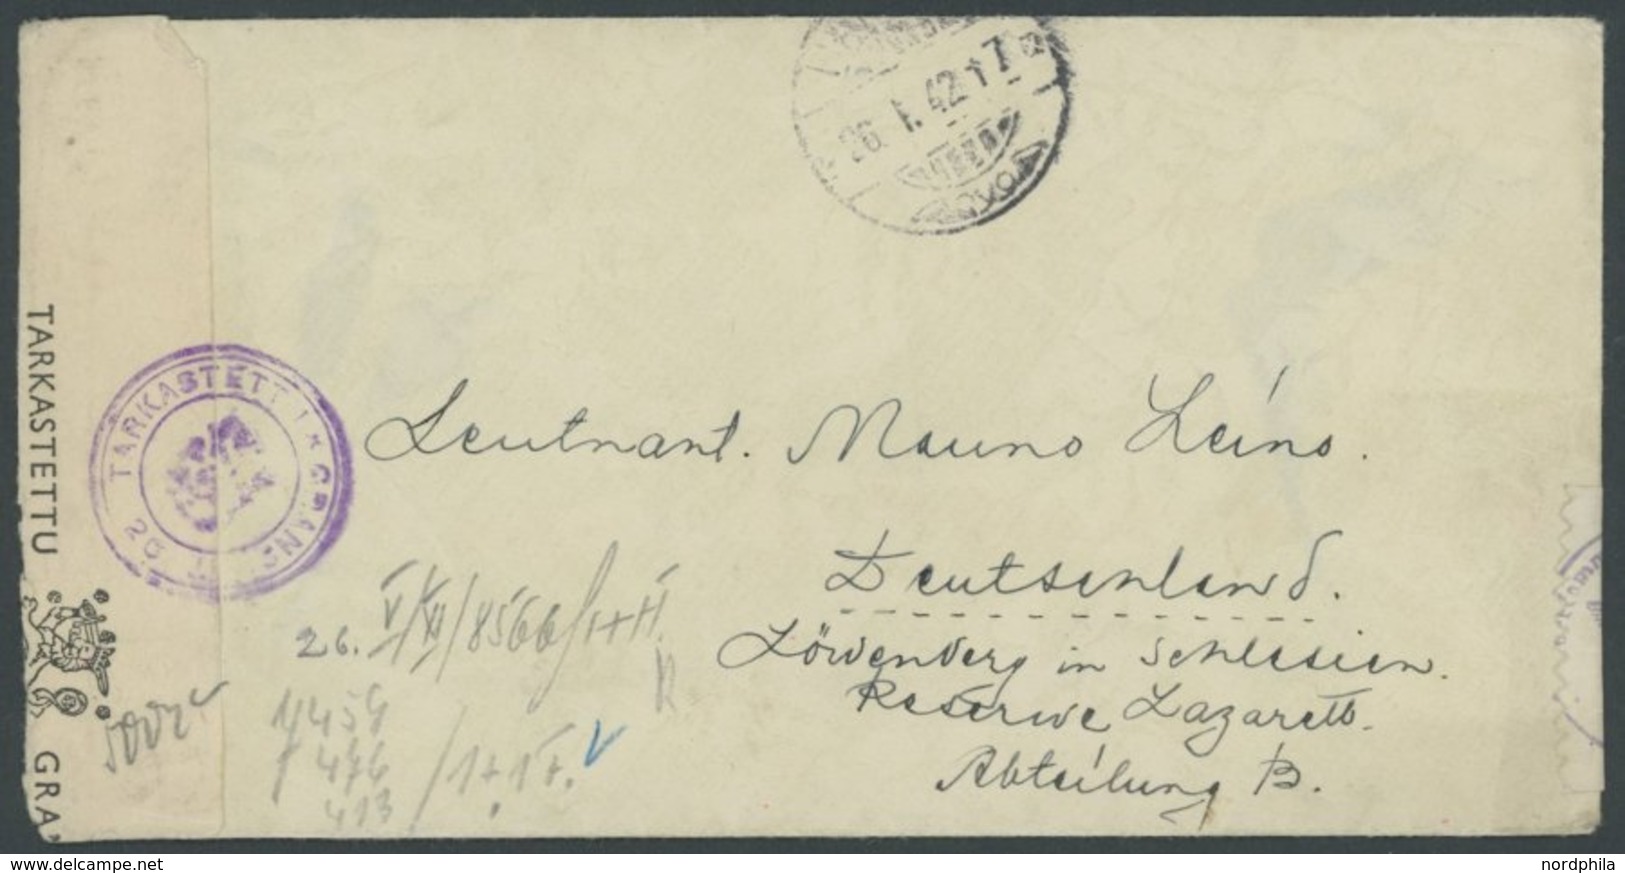 26. I. 42. 17
TARKASTETTU
GRA
TARKASTETTU * GRAN
26
Leutnant. Mauno Leino.
Deutschland.
Löwenberg in Schlesien.
Reserwe Lazarett.
Abteilung B.
26. V/XII/8566/I+II
459
476
413
/1+1+.
www.delcampe.net
nordphila